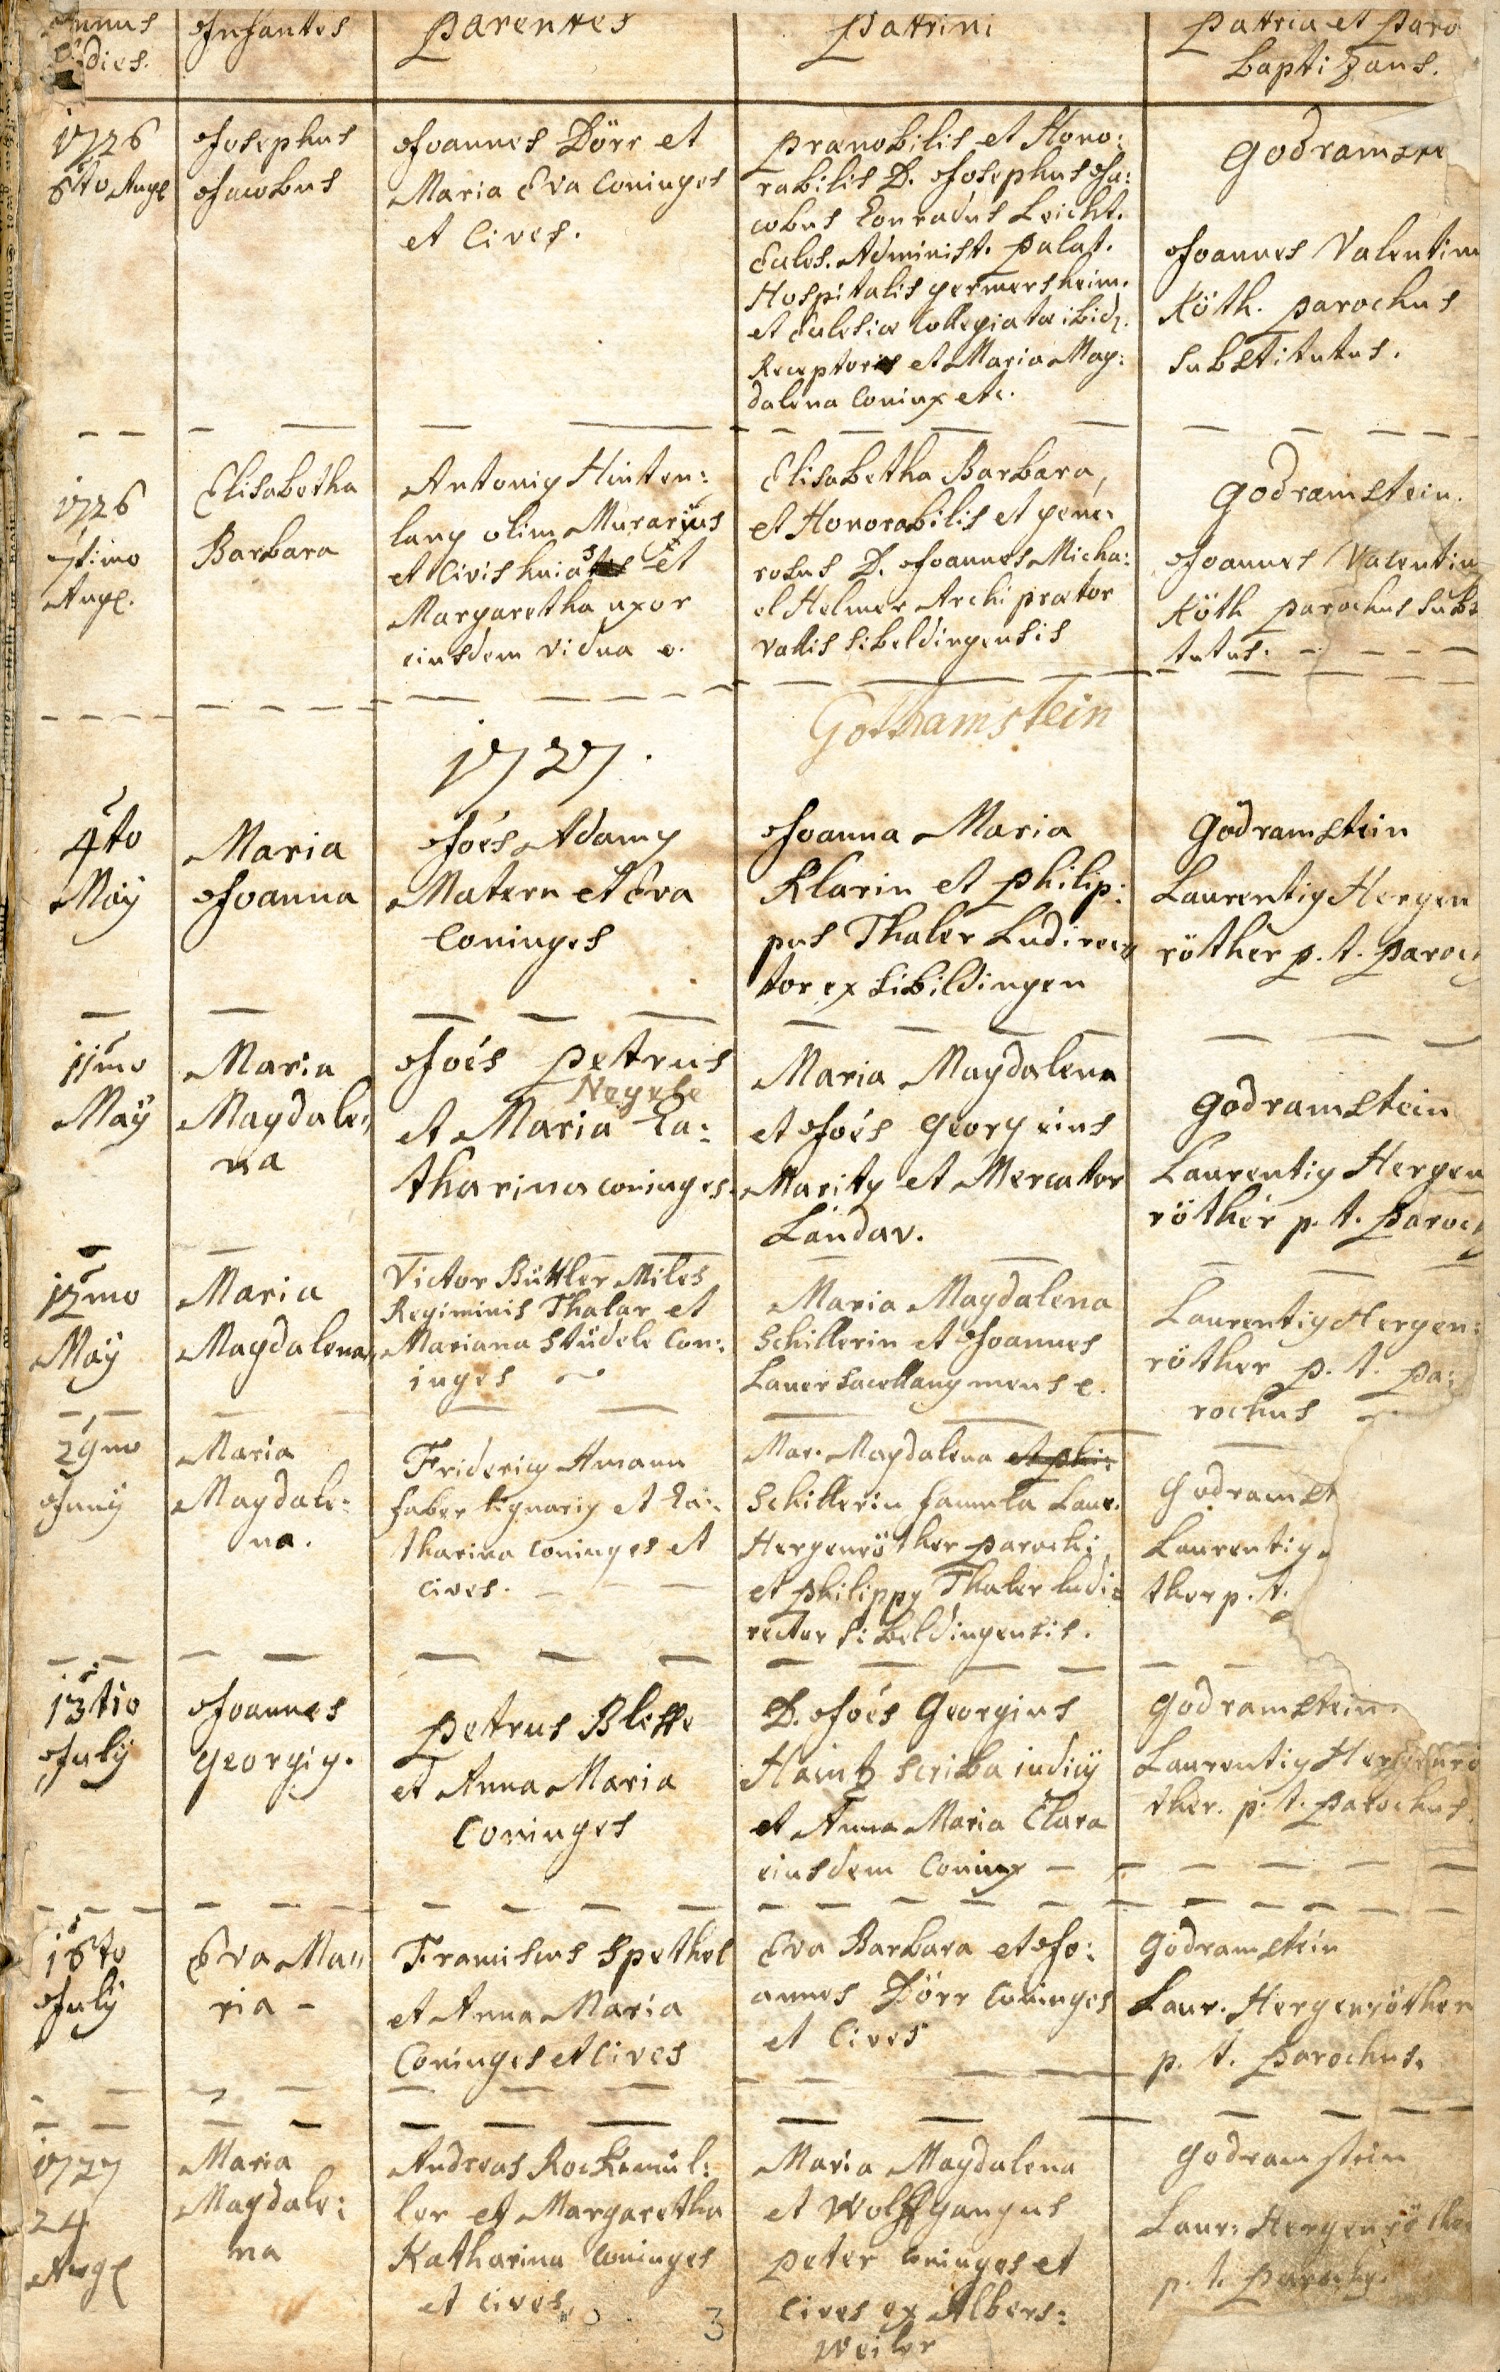 Annus et dies.
Infantes
Parentes
Patrini
Patria et Paro
baptizans.
1726
6to Aug
Josephus
Jacobus
Joannes Dörr et
Maria Eva Coniuges
et Cives.
Prænobilis et Hono:
rabilis D. Josephus Ja:
cobus Conradus Leicht.
Eccles. Administ. Palat.
Hospitalis germersheim.
et Ecclesiæ Collegiatæ ibid.
Receptoris et Maria Mag:
dalena Coniux etc.
Godramste
Joannes Valentin
Köth. parochus
substitutus.
1726
7timo
Aug.
Elisabetha
Barbara
Antonig Hinten:
lang olim Murarius
et Civis huias et
Margaretha uxor
eiusdem vidua
Elisabetha Barbara,
et Honorabilis et gene:
rosus D. Joannes Micha:
el Helmer Archi prætor
vallis sibeldingensis
Godramstein.
Joannes Valentin
Köth parochus subs
tutus.
1727.
Gottramstein
4to
May
Maria
Joanna
Joés Adamy
Matern et Eva
Coniuges
Joanna Maria
Klarin et Philip:
pus Thaler Ludirec
tor ex sibildingen
Godramstein
Laurentig Hergen
röther p. t. Paroc
11mo
May
Maria
Magdale,,
na
Joés Petrus
Negele
et Maria Ca:
tharina coniuges.
Maria Magdalena
et Joés Georgius
Marity et Mercator
Landav.
Godramstein
Laurentig Hergen
röther p. t. Paroc
12mo
May
Maria
Magdalena
Victor Büttler Miles
Regiminis Thalar et
Mariana Stüdele Con:
iuges
Maria Magdalena
Schillerin et Joannes
Laner sacellany meus e.
Laurentig Hergen:
röther p. t. Pa:
rochus
29mo
Juny
Maria
Magdale:
na.
Fridericg Amann
faber lignarig et Ca:
tharina Coniuges et
cives.
Mar. Magdalena et Phi:
Schillerin famula Laur.
Hergenröther Parochi
et Philippg Thaler ludi:
rector sibeldingensis.
Godramst
Laurentig
ther p. t.
13tio
July
Joannes
Georgig.
Petrus Bless
et Anna Maria
Coniuges
D. Joés Georgius
Haintz scriba iudicÿ
et Anna Maria Clara
eiusdem Coniux
Godramstein.
Laurentig Hergenrö
ther. p. t. Parochus.
16to
July
Eva Ma,,
ria
Franciscus Spethel
et Anna Maria
Coniuges et Cives
Eva Barbara et Jo:
annes Dörr Coniuges
et Cives
Godramstein
Laur. Hergenröther
p. t. Parochus.
1727
24
Aug
Maria
Magdale:
na
Andreas Rockemül:
ler et Margaretha
Katharina Coniuges
et cives.
Maria Magdalena
et Wolffgangus
Peter coniuges et
Cives ex Albers:
weiler
Godramstein
Laur. Hergenröther
p. t. Parochg.
3